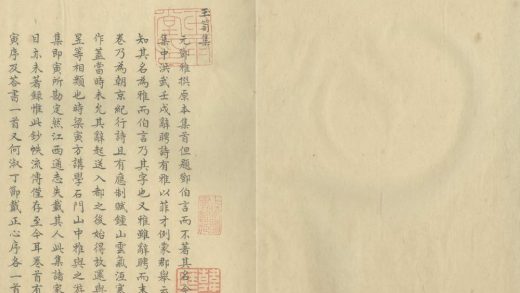 玉笥集
元鄧雅撰原本集首但題鄧伯言而不著其名今
集中洪武壬戌辭聘詩有雅以菲才例蒙郡舉云
知其名為雅而伯言乃其字也又雅雖辭聘而末
卷乃為朝京紀行詩且有應制賦鍾山雲氣浥寒
作蓋當時未允其辭起送入都之後始得放還與
昱等相類也時梁寅方講學石門山中雅與之遊
集即寅所勘定然江西通志失載其人此集諸家
目亦未著錄惟此鈔帙流傳僅存至今耳卷首有
寅序及荅書一首又何淑丁節戴正心序各一首